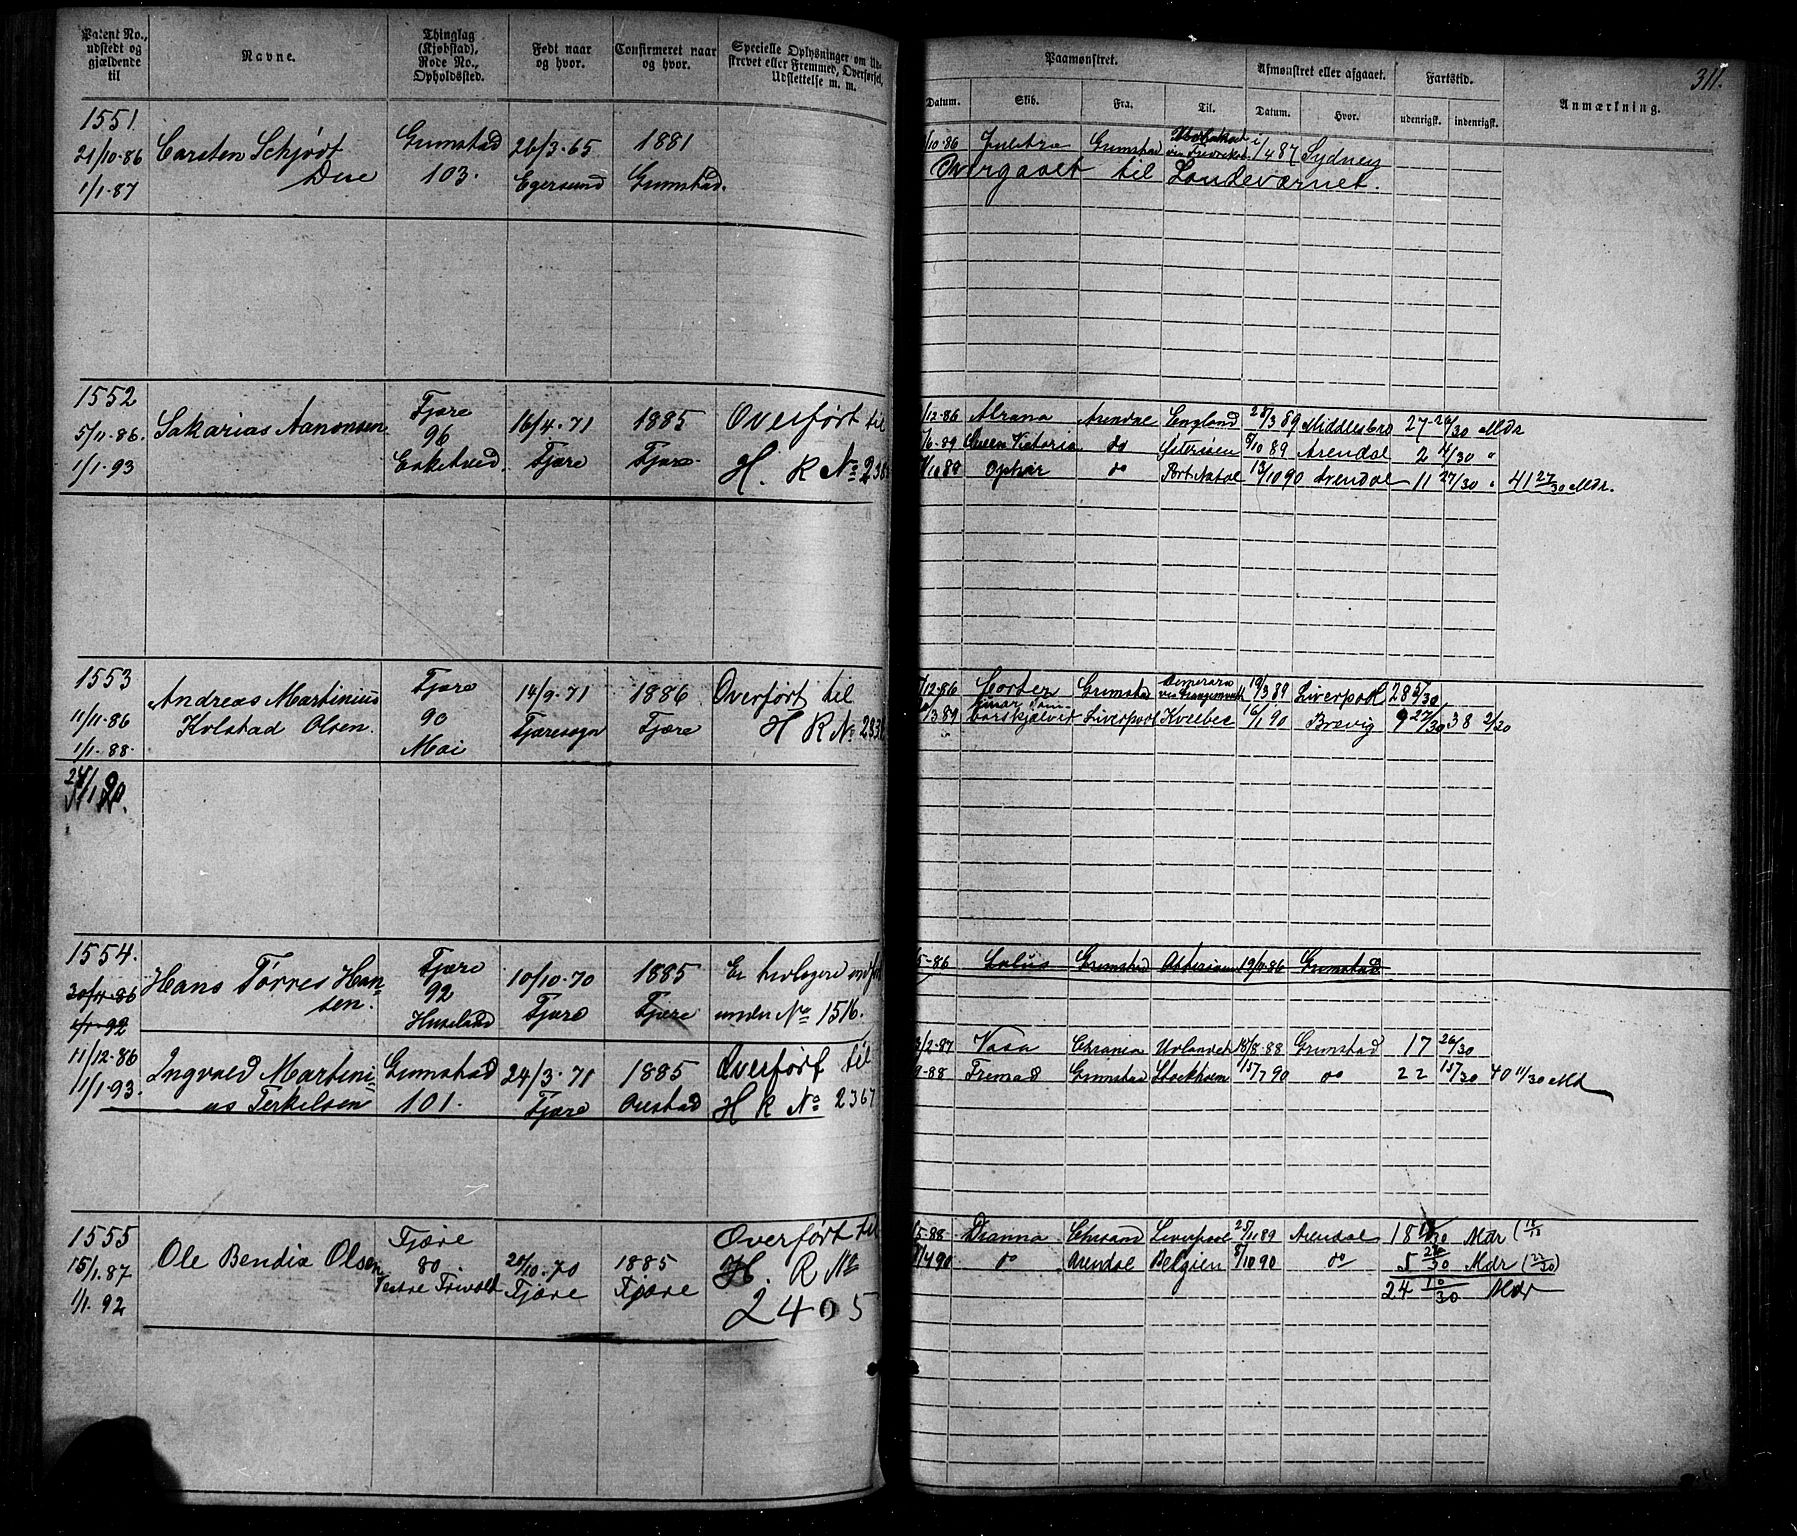 311.
Patent No., udstedt og gjældende til
Navne.
Thinglag (Kjøbstad), Rode No., Opholdssted.
Født naar og hvor.
Confirmeret naar og hvor.
Specielle Oplysninger om Ud- skrevet eller Fremmed, Overførsel, Udslettelse m. m.
Paamønstret.
Afmønstret eller afgaaet.
Fartstid.
Anmærkning.
Datum. Skib. Fra. Til. Datum. Hvor. udenrigsk. indenrigsk.
1551.
21/10-86 Carsten Schjødt Grimstad 26/3-65 1881
1/1-87 Due 103. Egersund Grimstad.
/10-86 Grimstad 1/4 87 Sydney
Overgaaet til Landeværnet.
1552 Fjære
5/11-86. Sakarias Aanonsen 96 16/4-71 1885 Overført til
1/1-93 Fjære Fjære H. R No
/12-86 Arendal England 25/3 89 Middlesbro 27 26/30 Mdr
/6-89 Queen Victoria do 89 Arendal 2 4/30 "
/10 89 Ophir do Port Natal 13/10 90 Arendal 11 27/30 " 41 27/30 Mdr.
1553 Fjære
11/11-86 Andreas Martinius 90 14/9-71 1886 Overført til
1/1-88 Kolstad Olsen. Moi Fjæresogn Fjære H R No
/12-86 Cortes Grimstad Demerara 19/3 89 Liverpool 28 5/30
/3 89 Liverpool Kvebec 16/1 90 Brevig 9 27/30 38 2/30
1554. Fjære
30/11-86 Hans Tørres Han- 92 10/10-70 1885 Er tidligere indført
1/1-92 sen. Fjære Fjære under No 1516.
5-86 Grimstad 86 Grimstad
11/12-86 Ingvald Martini- Grimstad 24/3-71 1885 Overført til
1/1-93. us Terkelsen 101. Fjære H R No 2367
3/2-87 Vasa Chrania Udlandet 18/8-88 Grimstad 17 26/30
9-88 Fremad Grimstad Stockholm 15/7 90 do 22 15/30 40 11/30 Md
1555 Fjære
15/1-87 Ole Bendix Olsen 80 -70 1885 Overført til
1/1. 92 Vestre Fjære Fjære H. R No
2405
5-88 Dianna Chrsand Liverpool 25/11 89 Arendal 18 Mdr
/4 90 do Arendal Belgien 8/10 90 do 5 Mdr
24 10/30 Mdr